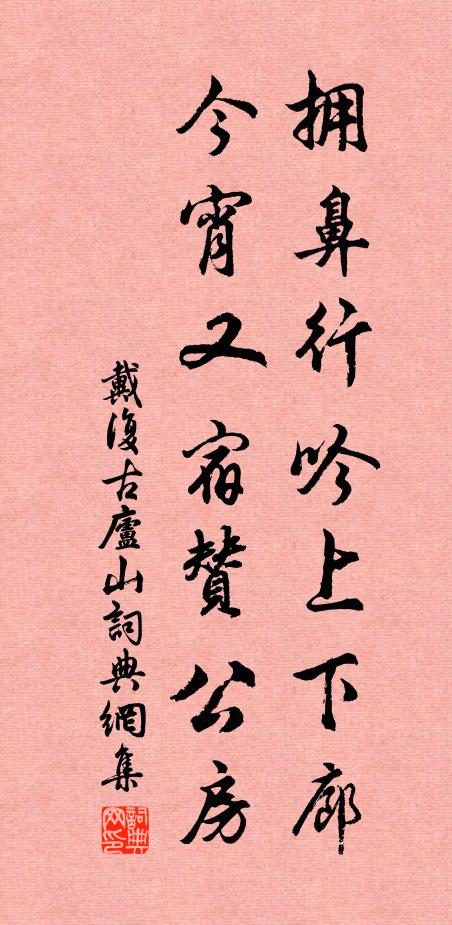 拥鼻行吟上下廊
今宵又宿赞公房
戴復古廬山詞典網集
詞典网印